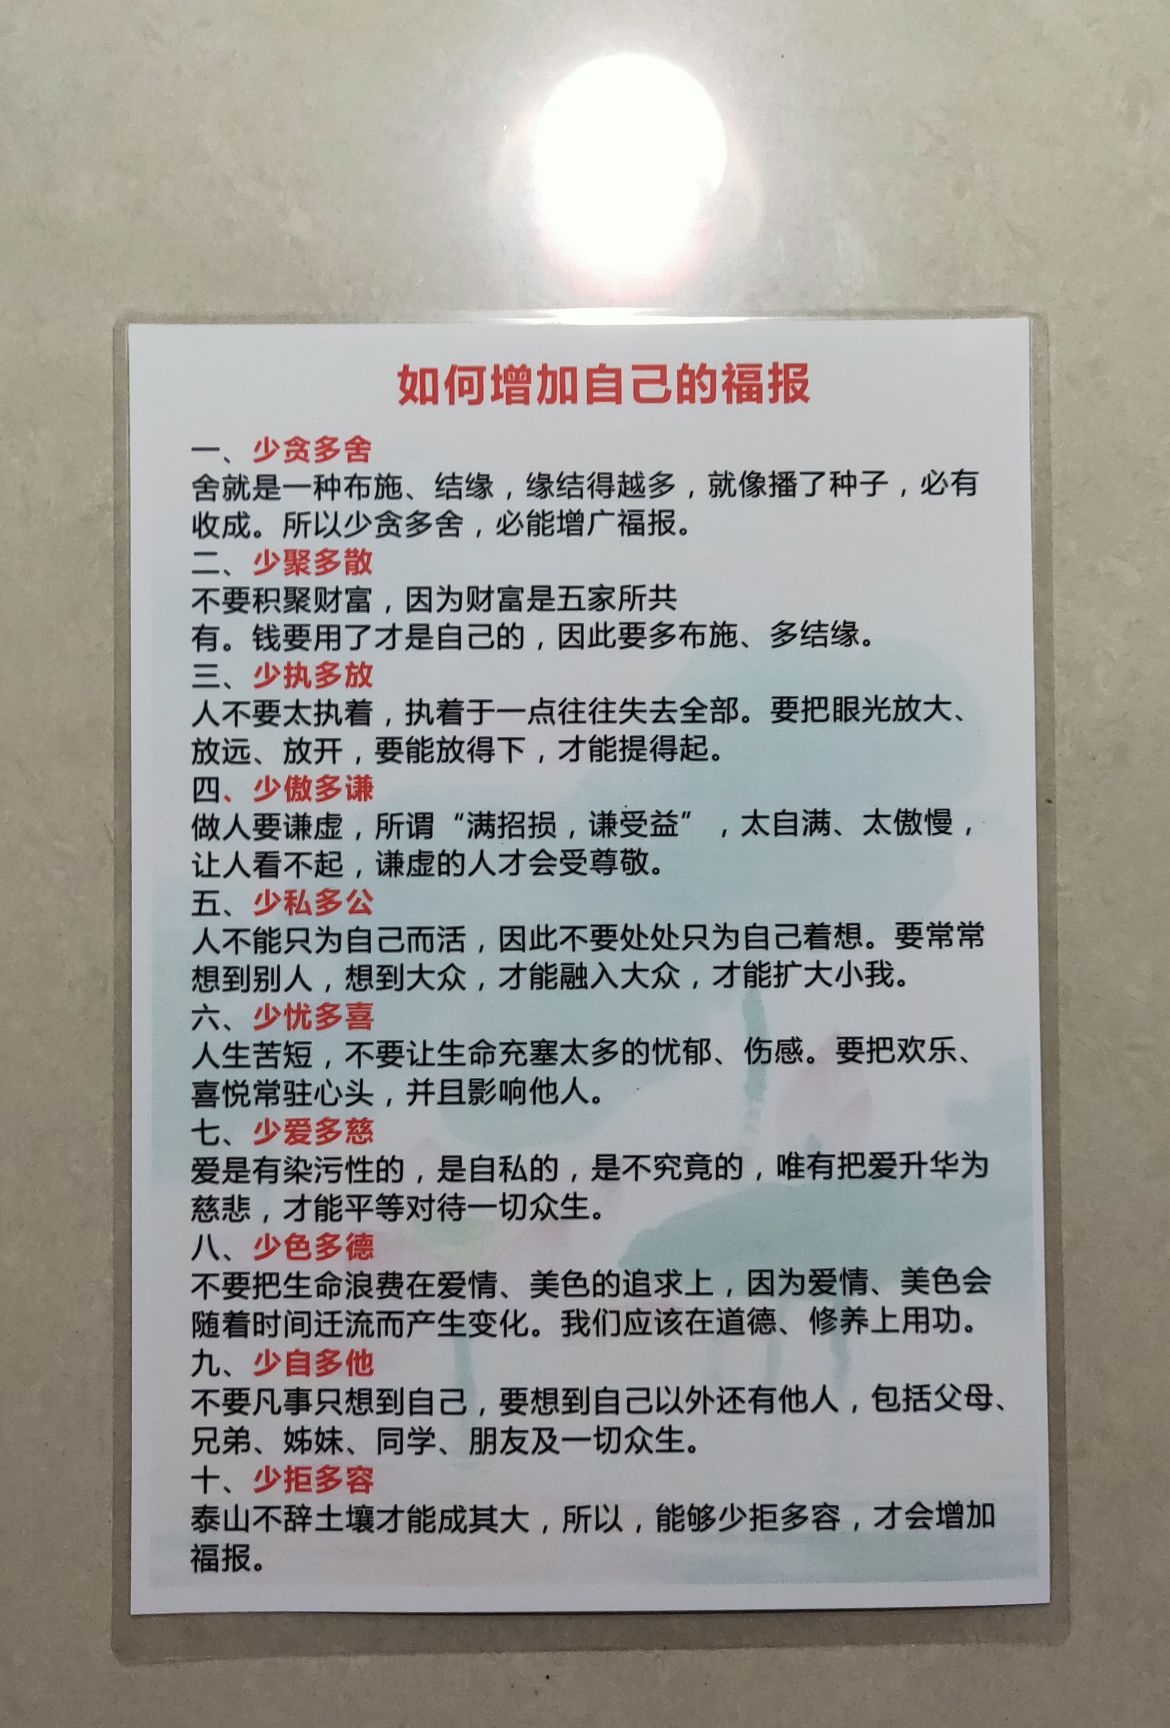 如何增加自己的福报
一、少贪多舍
舍就是一种布施、结缘，缘结得越多，就像播了种子，必有
收成。所以少贪多舍，必能增广福报。
二、少聚多散
不要积聚财富，因为财富是五家所共
有。钱要用了才是自己的，因此要多布施、多结缘。
三、少执多放
人不要太执着，执着于一点往往失去全部。要把眼光放大、
放远、放开，要能放得下，才能提得起。
四、少傲多谦
做人要谦虚，所谓“满招损，谦受益”，太自满、太傲慢，
让人看不起，谦虚的人才会受尊敬。
五、少私多公
人不能只为自己而活，因此不要处处只为自己着想。要常常
想到别人，想到大众，才能融入大众，才能扩大小我。
六、少忧多喜
人生苦短，不要让生命充塞太多的忧郁、伤感。要把欢乐、
喜悦常驻心头，并且影响他人。
七、少爱多慈
爱是有染污性的，是自私的，是不究竟的，唯有把爱升华为
慈悲，才能平等对待一切众生。
八、少色多德
不要把生命浪费在爱情、美色的追求上，因为爱情、美色会
随着时间迁流而产生变化。我们应该在道德、修养上用功。
九、少自多他
不要凡事只想到自己，要想到自己以外还有他人，包括父母、
兄弟、姊妹、同学、朋友及一切众生。
十、少拒多容
泰山不辞土壤才能成其大，所以，能够少拒多容，才会增加
福报。